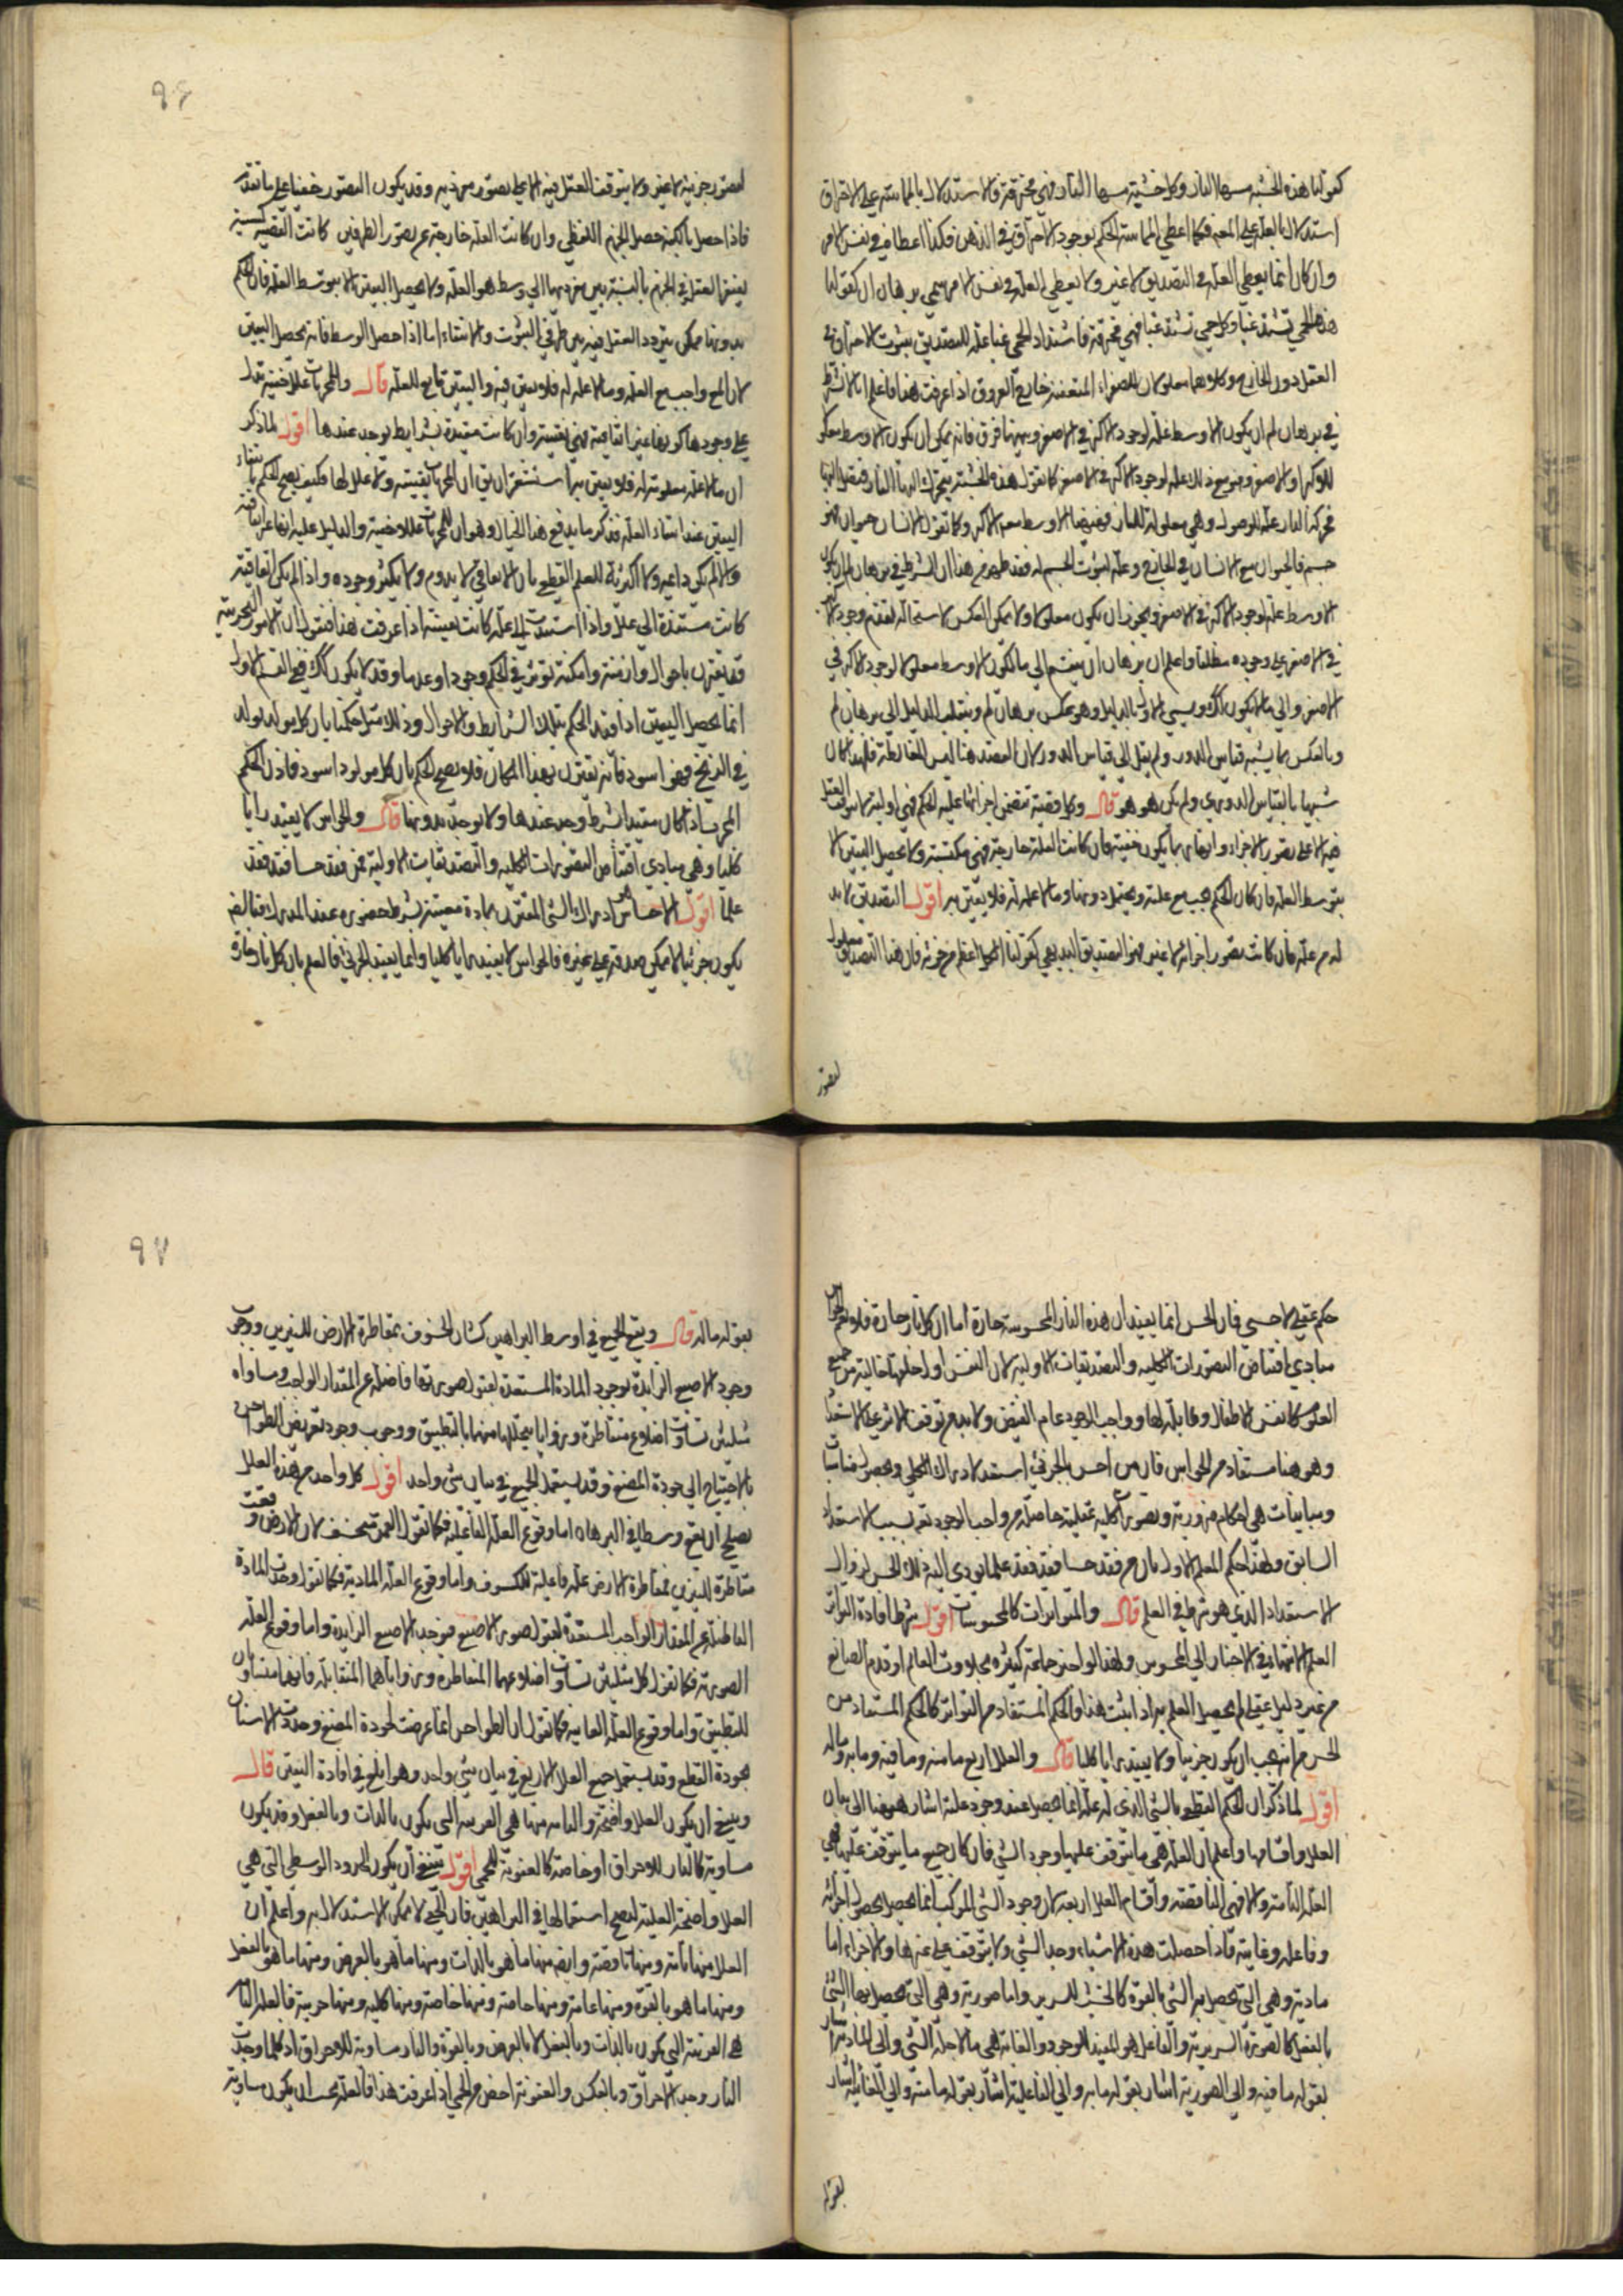 كقولنا هذه الخشبة مسها النار وكل خشبة مسها النار فهي محترقة فالاستدلال بالمماسة على الاحتراق
استدلال بالعلة على المعلول فكما اعطى المماسة الحكم بوجود الاحتراق في الذهن فكذا اعطاه في نفس الامر
وان كان انما يعطي العلة في التصديق لا غير ولا يعطي العلة في نفس الامر سمي برهان ان كقولنا
هذه الحمى تشتد غبا وكل حمى تشتد غبا فهي محرقة فاشتداد الحمى غبا علة للتصديق بثبوت الاحتراق في
العقل دون الخارج وكلاهما معلولان للصفراء المتعفنة خارج العروق اذا عرفت هذا فاعلم انه لا يشترط
في برهان لم ان يكون الاوسط علة لوجود الاكبر في الاصغر وبينهما فرق فانه يمكن ان يكون الاوسط معلولا
للاكبر او الاصغر وهو مع ذلك علة لوجود الاكبر في الاصغر كما تقول هذه الخشبة يتحرك اليها النار فتصل اليها
فحركة النار علة للوصول وهي معلولة للنار فههنا الاوسط معلول الاكبر وكما تقول الانسان حيوان فهو
جسم فالحيوان مع الانسان في الخارج وعلة لثبوت الجسم له فقد ظهر من هذا ان الشرط في برهان لم ان يكون
الاوسط علة لوجود الاكبر في الاصغر ويجوز ان يكون معلولا ولا يمكن العكس لاستحالة تقدم وجود الاكبر
في الاصغر على وجوده مطلقا واعلم ان برهان ان ينقسم الى ما يكون الاوسط معلولا لوجود الاكبر في
الاصغر والى ما لا يكون كذلك ويسمى الاول بالدليل وهو عكس برهان لم وينقلب الدليل الى برهان لم
وبالعكس بما يشبه قياس الدور ولم يقل الى قياس الدور لان القصد هنا ليس للمغالطة فلهذا كان
شبيها بالقياس الدوري ولم يكن هو هو قال وكل قضية تتضمن اجزائها علية الحكم فهي اولية لا يتوقف العقل
فيه الا على تصور الاجزاء وانها ربما يكون خفية فان كانت العلة خارجة فهي مكتسبة ولا يحصل اليقين الا
بتوسط العلة فان كان الحكم يجب مع علته ويحتمل دونها وما لا علة له فلا يتيقن به اقول التصديق لا بد
له من علة فان كانت تصور اجزائه لا غير فهو التصديق البديهي كقولنا الكل اعظم من جزئه فان هذا التصديق معلول
لتصور
٩٦
لتصور جزئيه لا غير ولا يتوقف العقل فيه الا على تصور جزئيه وقد يكون التصور خفيا على ما تقدم
فاذا حصل بالكنه حصل الجزم القطعي وان كانت العلة خارجة عن تصور الطرفين كانت القضية كسبية
يفتقر العقل في الجزم بالنسبة بين جزئيها الى وسط هو العلة ولا يحصل اليقين الا بتوسط العلة فان الحكم
بدونها ممكن يتردد العقل فيه بين طرفي الثبوت والانتفاء اما اذا حصل الوسط فانه يحصل اليقين
لان الحكم واجب مع العلة وما لا علة له فلا يقين فيه واليقين تابع للعلة قال وللمجربات علل خفية تدل
على وجودها كونها غير اتفاقية فهي يقينية وان كانت مقيدة بشرايط يوجد عندها اقول لما ذكر
ان ما لا علة معلومة له فلا يقين به استشعر ان يق ان المجربات يقينية ولا علل لها فكيف يصح الحكم بانتفاء
اليقين عند انتفاء العلة فذكر ما يدفع هذا الخيال وهو ان للمجربات عللا خفية والدليل عليه انها غير اتفاقية
والا لم يكن داعية ولا اكثرية للعلم القطعي بان الاتفاقي لا يدوم ولا يكثر وجوده واذا لم يكن اتفاقية
كانت مستندة الى علل واذا استندت الى علة كانت يقينية اذا عرفت هذا فنقول ان الامور التجربية
قد يقترن باحوال وازمنة وامكنة تؤثر في الحكم وجودا وعدما وقد لا يكون كذلك ففي القسم الاول
انما يحصل اليقين اذا قيد الحكم بتلك الشرايط والاحوال وذلك مثل حكمنا بان كل مولود يولد
في الزنج فهو اسود فانه يقترن بهذا المكان فلا يصح الحكم بان كل مولود اسود فاذن الحكم
المجرب اذا كان مقيدا بشرط وجد عندها ولا يوجد بدونها قال والحواس لا يفيد رايا
كليا وهي مبادي اقتناص التصورات الكلية والتصديقات الاولية فمن فقد حسا فقد فقد
علما اقول الاحساس هو ادراك الشئ المقترن بمادة معينة بشرط حضوره عند المدرك فبالضرورة
يكون جزئيا لا يمكن صدقه على غيره فالحواس لا يفيد رايا كليا وانما يفيد الجزئي فالعلم بان كل نار حارة
حكم عقلي لا حسي فان الحس انما يفيد ان هذه النار المحسوسة حارة اما ان كل نار حارة فلا نعم الحواس
مبادي اقتناص التصورات الكلية والتصديقات الاولية لان النفس اول خلقها خالية من جميع
العلوم كانفس الاطفال وقابلة لها وواجب الوجود عام الفيض ولا بد من توقف الاثر على الاستعداد
وهو هنا مستفاد من الحواس فان من احس بالجزئي استعد لادراك الكلي وبحصول مناسبات
ومباينات هي احكام ضرورية وتصورات كلية عقلية حاصلة من واجب الوجود تع بسبب الاستعداد
السابق ولهذا حكم المعلم الاول بان من فقد حسا فقد فقد علما يؤدي اليه ذلك الحس لزوال
الاستعداد الذي هو شرط في العلم قال والمتواترات كالمحسوسات اقول شرط افادة التواتر
العلم الانتهاء في الاخبار الى المحسوس ولهذا لو اخبر جماعة كثيرة بحدوث العالم او قدم الصانع
من غير دليل عقلي لم يحصل العلم به اذا ثبت هذا فالحكم المستفاد من التواتر كالحكم المستفاد من
الحس في انه يجب ان يكون جزئيا ولا يفيد رايا كليا قال والعلل اربع ما منه وما فيه وما به وما له
اقول لما ذكر ان الحكم القطعي بالشئ الذي له علة انما يحصل عند وجود علته اشار ههنا الى بيان
العلل واقسامها واعلم ان العلة هي ما يتوقف عليها وجود الشئ فان كان جميع ما يتوقف عليه فهي
العلة التامة والا فهي الناقصة واقسام العلل اربعة لان وجود الشئ المركب انما يحصل بحصول اجزائه
وفاعله وغايته فاذا حصلت هذه الاشياء وجد الشئ ولا يتوقف على غيرها والاجزاء اما
مادية وهي التي يحصل بها الشئ بالقوة كالخشب للسرير واما صورية وهي التي يحصل بها الشئ
بالفعل كالصورة السريرية والفاعل هو المفيد للوجود والغاية هي ما لاجله الشئ والى المادية اشار
بقوله ما فيه والى الصورية اشار بقوله ما به والى الفاعلية اشار بقوله ما منه والى الغائية اشار
بقوله
٩٧
بقوله ما له قال ويقع الجميع في اوسط البراهين كشان الخسوف بمقاطرة الارض للنيرين ووجوب
وجود الاصبع الزايدة بوجود المادة المستعدة لقبول صورتها فاضلة عن المقدار الواجب ومساواة
مثلثين تساوت اضلاع متناظرة وزوايا يتخللها منهما بالتطبيق ووجوب وجود تعريض الطواحن
بالاحتياج الى جودة المضغ وقد يستعمل الجميع في بيان شئ واحد اقول كل واحد من هذه العلل
يصلح ان يقع وسطا في البرهان اما وقوع العلة الفاعلية فكما تقول القمر منخسف لان الارض وقعت
مقاطرة للنيرين فمقاطرة الارض علة فاعلية للكسوف واما وقوع العلة المادية فكما تقول وجدت المادة
الفاضلة عن المقدار الواجب المستعدة لقبول صورة الاصبع فتوجد الاصبع الزايدة واما وقوع العلة
الصورية فكما تقول كل مثلثين تساوت اضلاعهما المتناظرة وزواياهما المتقابلة فانهما متساويان
للتطبيق واما وقوع العلة الغاية فكما تقول ان الطواحن انما عرضت لجودة المضغ وحدت الاسنان
لجودة القطع وقد يستعمل جميع العلل الاربع في بيان شئ واحد وهو ابلغ في افادة اليقين قال
وينبغي ان يكون العلل واضحة والتامة منها هي القريبة التي يكون بالذات وبالفعل وقد يكون
مساوية كالنار للاحراق او خاصة كالعفونة للحمى اقول ينبغي ان يكون الحدود الوسطى التي هي
العلل واضحة العلية ليصح استعمالها في البراهين فان الخفي لا يمكن الاستدلال به واعلم ان
العلل منها تامة ومنها ناقصة وايضا منها ما هو بالذات ومنها ما هو بالعرض ومنها ما هو بالفعل
ومنها ما هو بالقوة ومنها عامة ومنها خاصة ومنها كلية ومنها جزئية فالعلة التامة
هي القريبة التي يكون بالذات وبالفعل لا بالعرض وبالقوة والنار مساوية للاحراق اذ كلما وجدت
النار وجد الاحراق وبالعكس والعفونة اخص من الحمى اذا عرفت هذا فالعلة يجب ان يكون مساوية